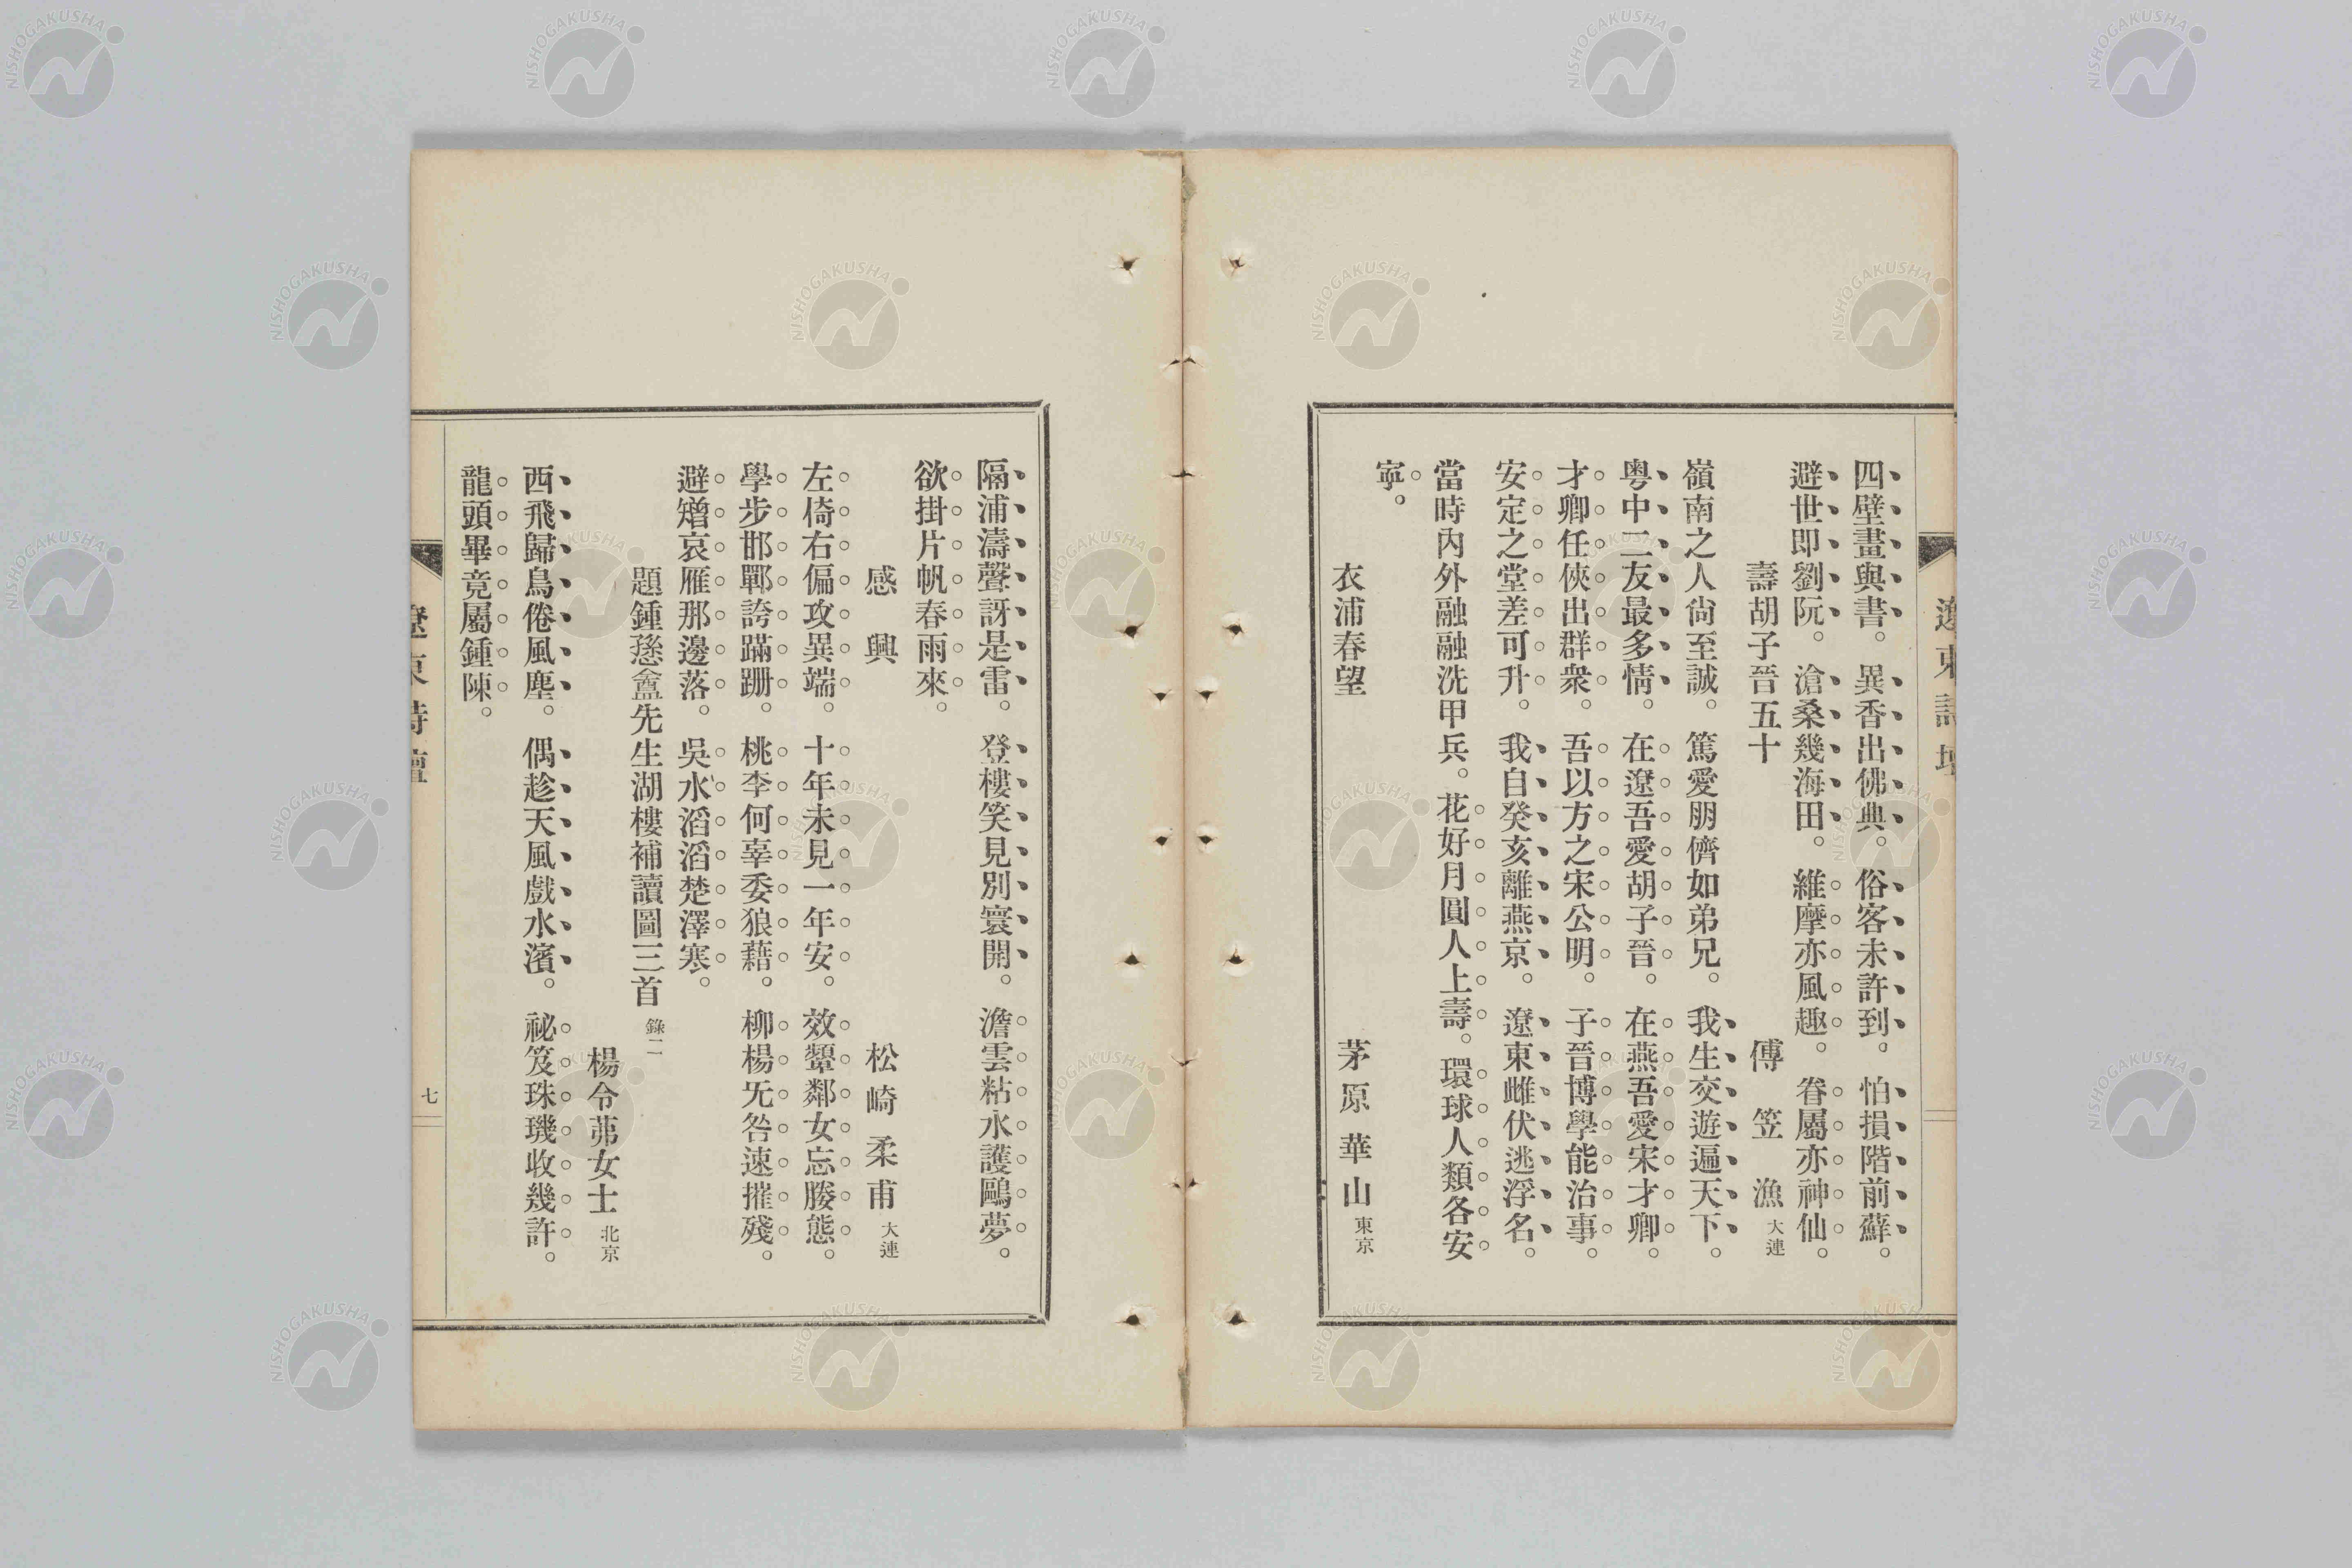 遼東詩壇
四壁畫與書。異香出佛典。俗客未許到。怕損階前蘚。
避世即劉阮。滄桑幾海田。維摩亦風趣。眷屬亦神仙。
壽胡子晉五十
傅笠漁 大連
嶺南之人尙至誠。篤愛朋儕如弟兄。我生交遊遍天下。
粤中二友最多情。在遼吾愛胡子晉。在燕吾愛宋才卿。
才卿任俠出群衆。吾以方之宋公明。子晉博學能治事。
安定之堂差可升。我自癸亥離燕京。遼東雌伏逃浮名。
當時內外融融洗甲兵。花好月圓人上壽。環球人類各安
寧。
衣浦春望
茅原華山 東京
隔浦濤聲訝是雷。登樓笑見別寰開。澹雲粘水護鷗夢。
欲掛片帆春雨來。
感興
松崎柔甫 大連
左倚右偏攻異端。十年未見一年安。效顰鄰女忘媵態。
學步邯鄲誇蹣跚。桃李何辜委狼藉。柳楊旡咎速摧殘。
避矰哀雁那邊落。吳水滔滔楚澤寒。
題鍾慈盦先生湖樓補讀圖三首 錄二
楊令茀女士 北京
西飛歸鳥倦風塵。偶趁天風戲水濱。祕笈珠璣收幾許。
龍頭畢竟屬鍾陳。
遼東詩壇
七
NISHOGAKUSHA